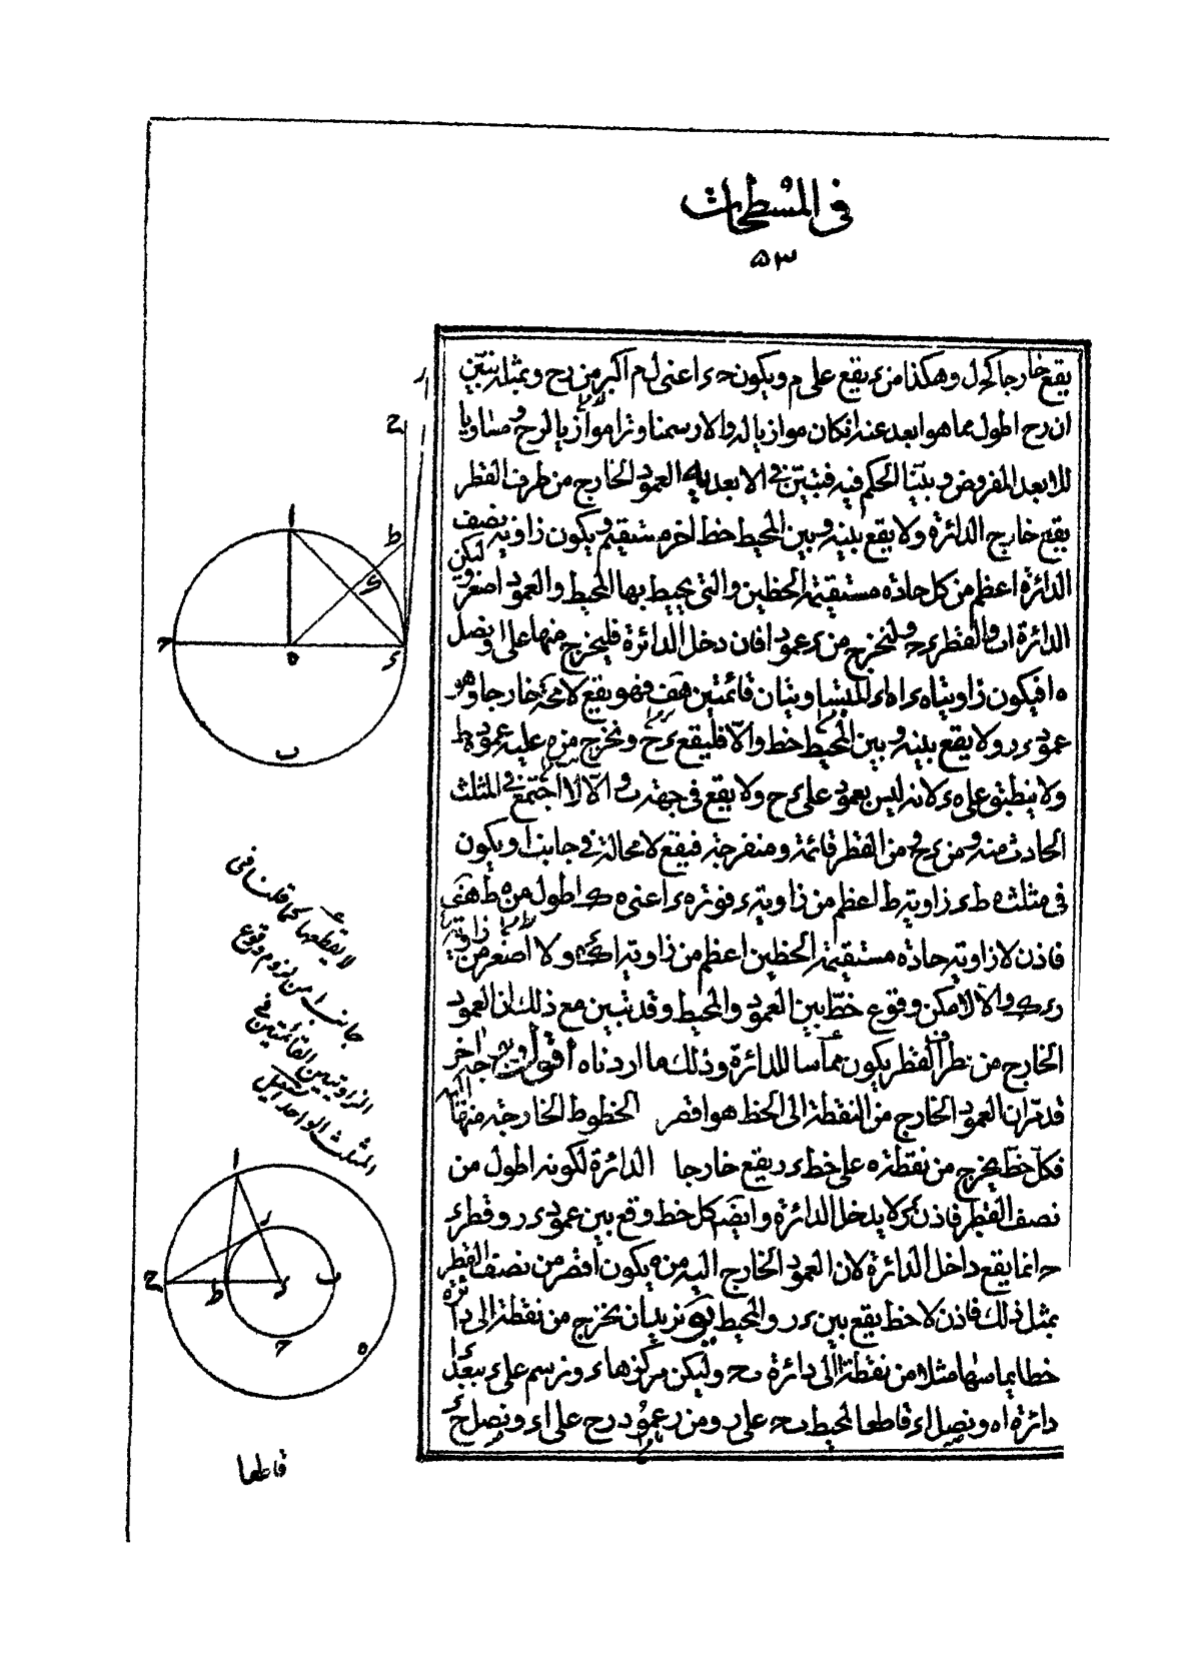 في المسطحات
٥٣
يقع خارجا كخ ل وهكذا من ء يقع على م ويكون ح ء اعنى ل م اكبر من ر ح وبمثله يتبين
ان ر ح اطول مما هو ابعد عنه ان كان موازيا له والا رسمنا وترا موازيا لرح ومساويا
للابعد المفروض وبينا الحكم فيه فتبين في الابعد يه العمود الخارج من طرف القطر
يقع خارج الدائرة ولا يقع بينه وبين المحيط خط اخر مستقيم ويكون زاوية نصف
الدائرة اعظم من كل حادة مستقيمة الخطين والتي يحيط بها المحيط والعمود اصغر وليكن
الدائرة ا ب والقطر ء ح وليخرج من ء عمود افان دخل الدائرة فليخرج منها على ا ونصل
ه ا فيكون زاويتا ه ء ا ه ا ء المتساويتان قائمتين هف فهو يقع لا محة خارجا وهو
عمود ء ر ولا يقع بينه وبين المحيط خط والا فليقع ء ح ونخرج من ه عليه عمود ه ط
ولا ينطبق على ه ء لانه ليس بعمود على ء ح ولا يقع في جهة ب والا لاجتمع في المثلث
الحادث منه ومن ء ح ومن القطر قائمة ومنفرجة فيقع لا محالة في جانب ا ويكون
في مثلث ه ط ء زاوية ط اعظم من زاوية ء فوتر ه ء اعنى ه ك اطول من ه ط هف
فاذن لا زاوية حادة مستقيمة الخطين اعظم من زاوية ا ء ك ه ولا اصغر من زاوية
ر ء ك والا لامكن وقوع خط بين العمود والمحيط وقد تبين مع ذلك ان العمود
الخارج من طرف القطر يكون مماسا للدائرة وذلك ما اردناه اقول وبوجه اخر
قد مر ان العمود الخارج من النقطة الى الخط هو اقصر الخطوط الخارجة منها اليه
فكل خط يخرج من نقطة ه على خط ء ر يقع خارجا الدائرة لكونه اطول من
نصف القطر فاذن ء ر لا يدخل الدائرة وايضا كل خط وقع بين عمود ء ر وقطر ء
ح انما يقع داخل الدائرة لان العمود الخارج اليه من ه يكون اقصر من نصف القطر
بمثل ذلك فاذن لا خط يقع بين ء ر والمحيط يو نريد ان نخرج من نقطة الى دائرة
خطا يماسها مثلا من نقطة ا الى دائرة ب ح وليكن مركزها ء ونرسم على ء ببعد ء ا
دائرة ا ه ونصل ا ء قاطعا لمحيط ب ح على ر ومن ر عمود ر ح على ا ء ونصل ح ء
ر
ح
ا
ط
ك
ح
ه
ء
ب
لا يقطعها كما قلنا في
جانب ا من لزوم وقوع
الزاويتين القائمتين في
المثلث الواحد
ا
ر
ح
ط
ء
ب
ح
ه
قاطعا